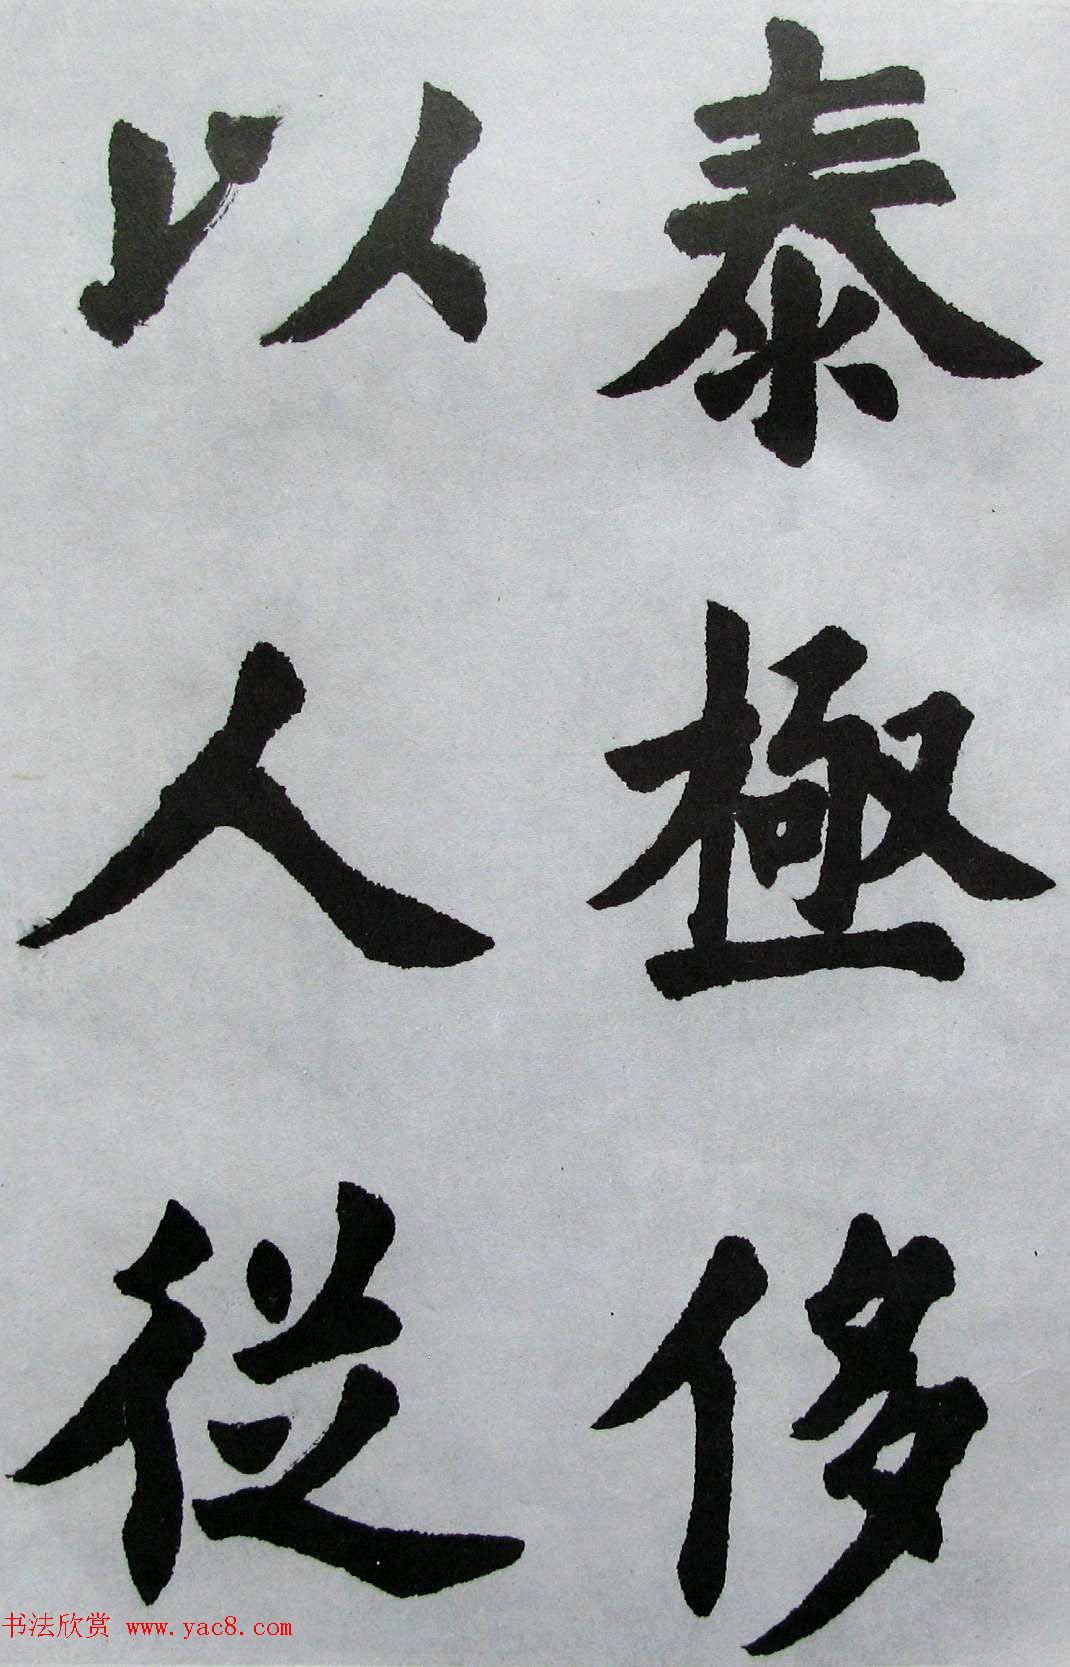 泰極侈
以人従
书法欣赏 www.yac8.com